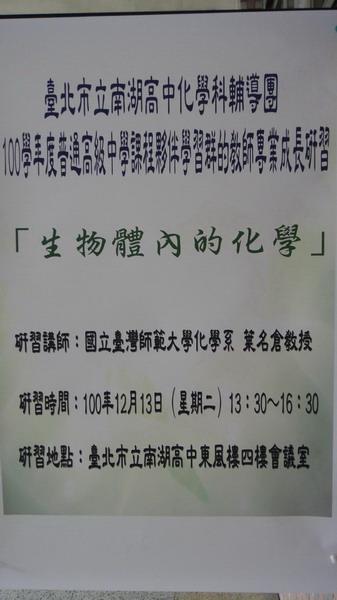 臺北市立南湖高中化學科輔導團
100學年度普通高級中學課程夥伴學習群的教師專業成長研習
「生物體內的化學」
研習講師：國立臺灣師範大學化學系 葉名倉教授
研習時間：100年12月13日（星期二）13：30～16：30
研習地點：臺北市立南湖高中東風樓四樓會議室